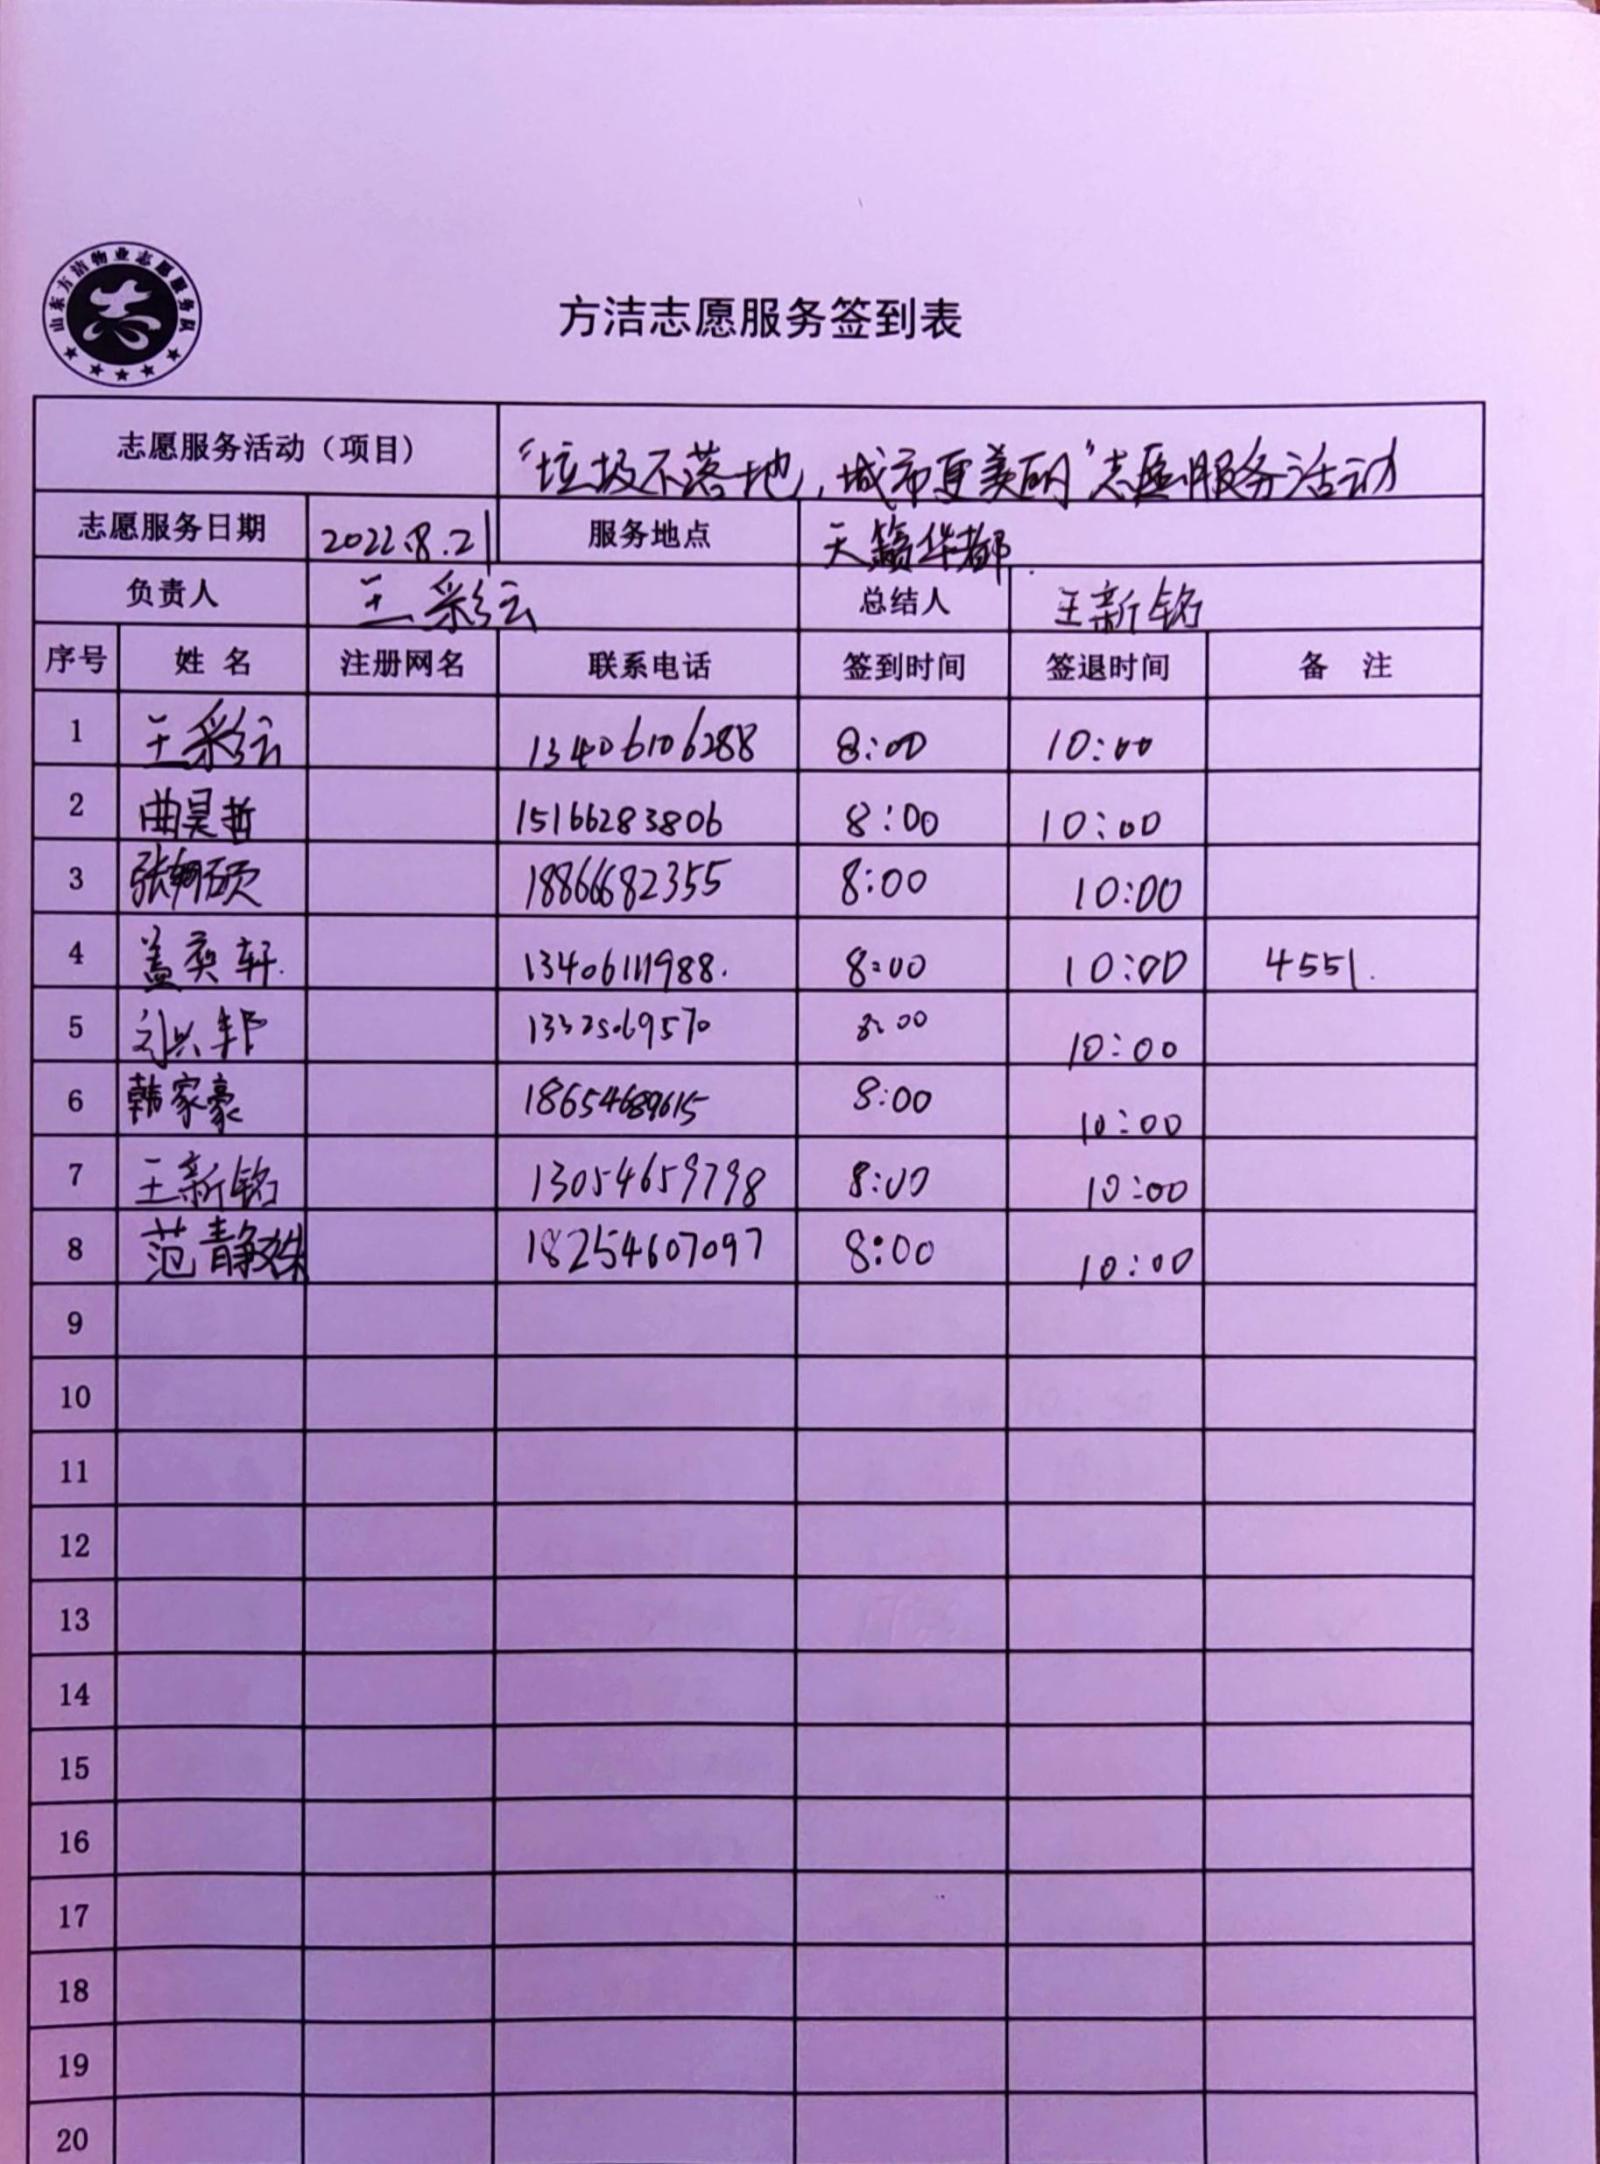 山东方洁物业志愿服务队
方洁志愿服务签到表
志愿服务活动（项目） “垃圾不落地，城市更美丽”志愿服务活动
志愿服务日期 2022.8.21 服务地点 天籁华都
负责人 王彩云 总结人 王新铭
序号 姓名 注册网名 联系电话 签到时间 签退时间 备注
1 王彩云 13406106288 8:00 10:00
2 曲昊哲 15166283806 8:00 10:00
3 张 硕 18866682355 8:00 10:00
4 盖奕轩 13406111988 8:00 10:00 4551
5 刘兴邦 13325069570 8:00 10:00
6 韩家豪 18654689615 8:00 10:00
7 王新铭 13054659798 8:00 10:00
8 范静姝 18254607097 8:00 10:00
9
10
11
12
13
14
15
16
17
18
19
20